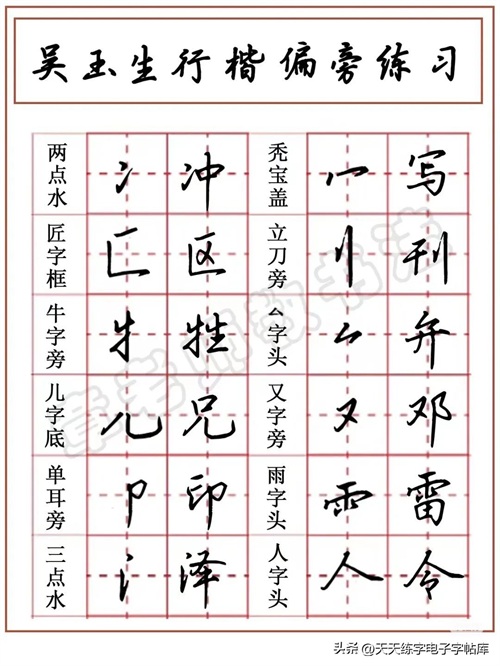 吴玉生行楷偏旁练习
两点水 冫 冲 秃宝盖 冖 写
匠字框 匚 区 立刀旁 刂 刊
牛字旁 牜 牲 厶字头 厶 弁
儿字底 儿 兄 又字旁 又 邓
单耳旁 卩 印 雨字头 雨 雷
三点水 氵 泽 人字头 人 令
头条 @天天练字电子字帖库